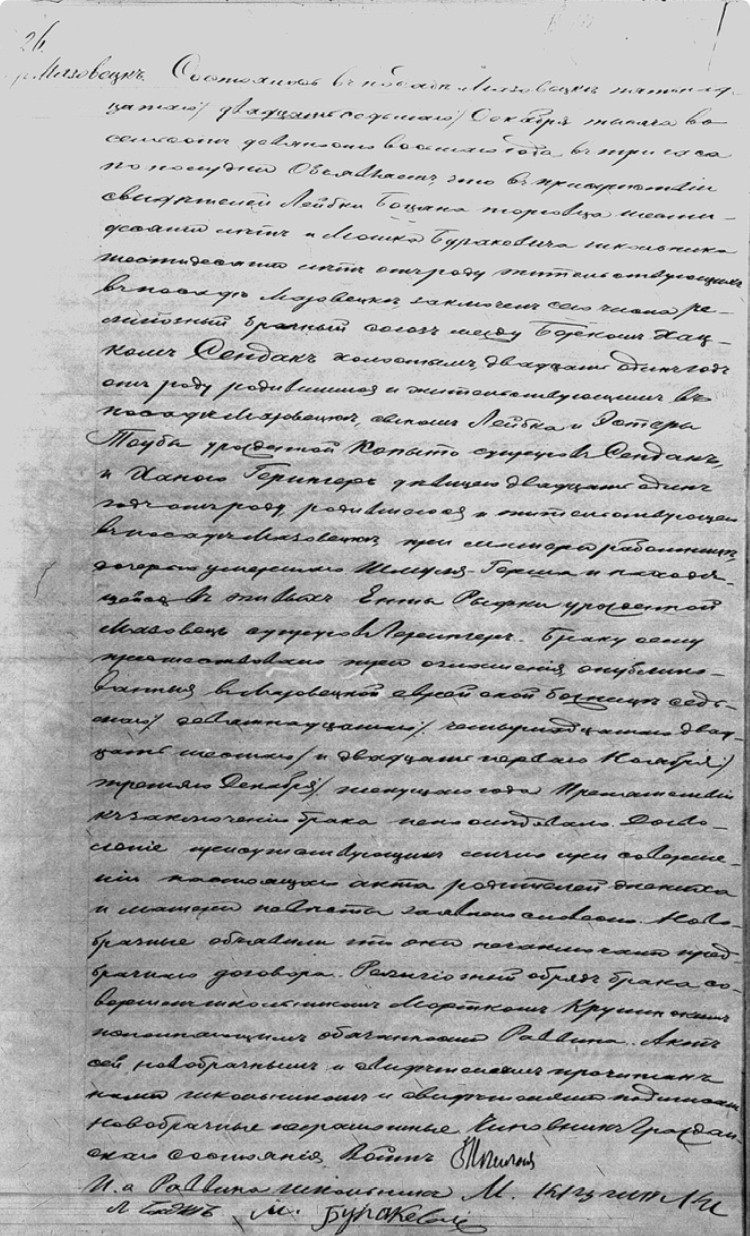 26.
г. Мазовецкъ. Состоялось въ посадѣ Мазовецкѣ пятнад-
цатаго /двадцать седьмаго/ Декабря тысяча во
семьсотъ девяносто восьмаго года въ три часа
по полудни Объявляемъ, что въ присутствіи
свидѣтелей Лейбки Боцяна торговца
десяти лѣтъ и Мошка Бураковича школьника
шестидесяти лѣтъ отъ роду жительствующихъ
въ посадѣ Мазовецкѣ, заключенъ сего числа ре-
лигіозный брачный союзъ между
комъ Сендакъ холостымъ двадцать одинъ годъ
отъ роду родившимся и жительствующимъ въ
посадѣ Мазовецкѣ, сыномъ Лейбка и Эстеры
Тоубы урожденной Копыто супруговъ Сендакъ,
и Ханою Герингеръ дѣвицею двадцать одинъ
годъ отъ роду, родившеюся и жительствующею
въ посадѣ Мазовецкѣ при матери работницѣ,
дочерью умершаго Шмуля-Герша и находя-
щейся въ живыхъ Енты Рыфки урожденной
Мазовецъ супруговъ Герингеръ. Браку сему
предшествовали три оглашенія, опублико-
ванныя въ Мазовецкой еврейской божницѣ седь-
маго /девятнадцатаго/, четырнадцатаго /двад-
цать шестаго/ и двадцать перваго Ноября /
третьяго Декабря/ текущаго года Препятствій
къ заключенію брака не послѣдовало. Дозво-
леніе присутствующихъ лично при соверше-
ніи настоящаго акта родителей жениха
и матери невѣсты заявлено словесно. Ново-
брачные объявили что они не заключали пред-
брачнаго договора. Религіозный обрядъ брака со-
вершенъ школьникомъ Морткомъ
исполняющимъ обязанности Раввина. Актъ
сей новобрачнымъ и свидѣтелямъ прочитанъ
нами школьникомъ и свидѣтелями подписанъ
новобрачные неграмотные. Чиновникъ Граждан-
скаго состоянія Войтъ
И. о Раввина школьникъ М.
М. Бураковичъ